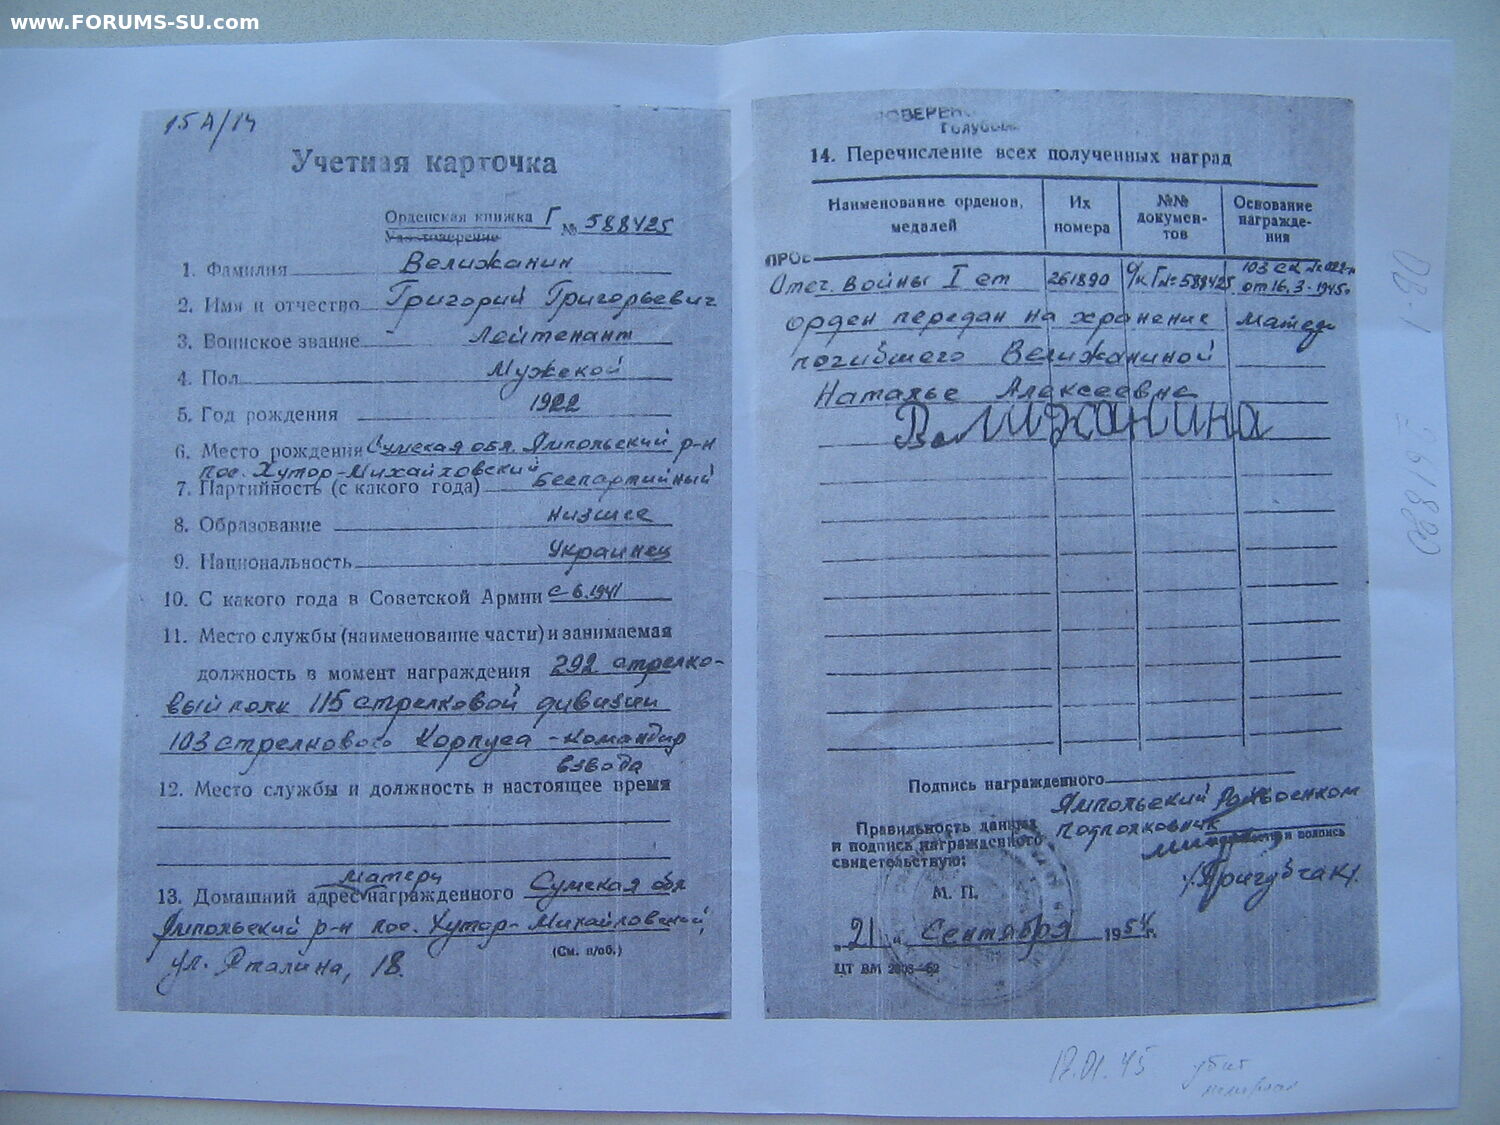 www.FORUMS-SU.com
15А/14
Учетная карточка
Орденская книжка Г № 588425
Удостоверение
1. Фамилия Велижанин
2. Имя и отчество Григорий Григорьевич
3. Воинское звание Лейтенант
4. Пол Мужской
5. Год рождения 1922
6. Место рождения Сумская обл. Ямпольский р-н
пос. Хутор-Михайловский
7. Партийность (с какого года) Беспартийный
8. Образование низшее
9. Национальность Украинец
10. С какого года в Советской Армии с 6.1941
11. Место службы (наименование части) и занимаемая
должность в момент награждения 292 стрелко-
вый полк 115 стрелковой дивизии
103 стрелкового Корпуса - командир
взвода
12. Место службы и должность в настоящее время
матери
13. Домашний адрес награжденного Сумская обл
Ямпольский р-н пос. Хутор-Михайловский,
(См. н/об.)
ул. Сталина, 18.
14. Перечисление всех полученных наград
Наименование орденов, медалей
Их номера
№№ докумен-тов
Основание награжде-ния
Отеч. войны I ст 261890 о/к Г№588425 103 ск
от 16.3-1945г
орден передан на хранение матери
погибшего Велижаниной
Наталье Алексеевне
Велижанина
Подпись награжденного
Ямпольский Райвоенком
Правильность данных
и подпись награжденного
свидетельствую:
подполковник
и подпись
М. П.
"21" Сентября 1954г.
ЦТ ВМ
17.01.45 убит